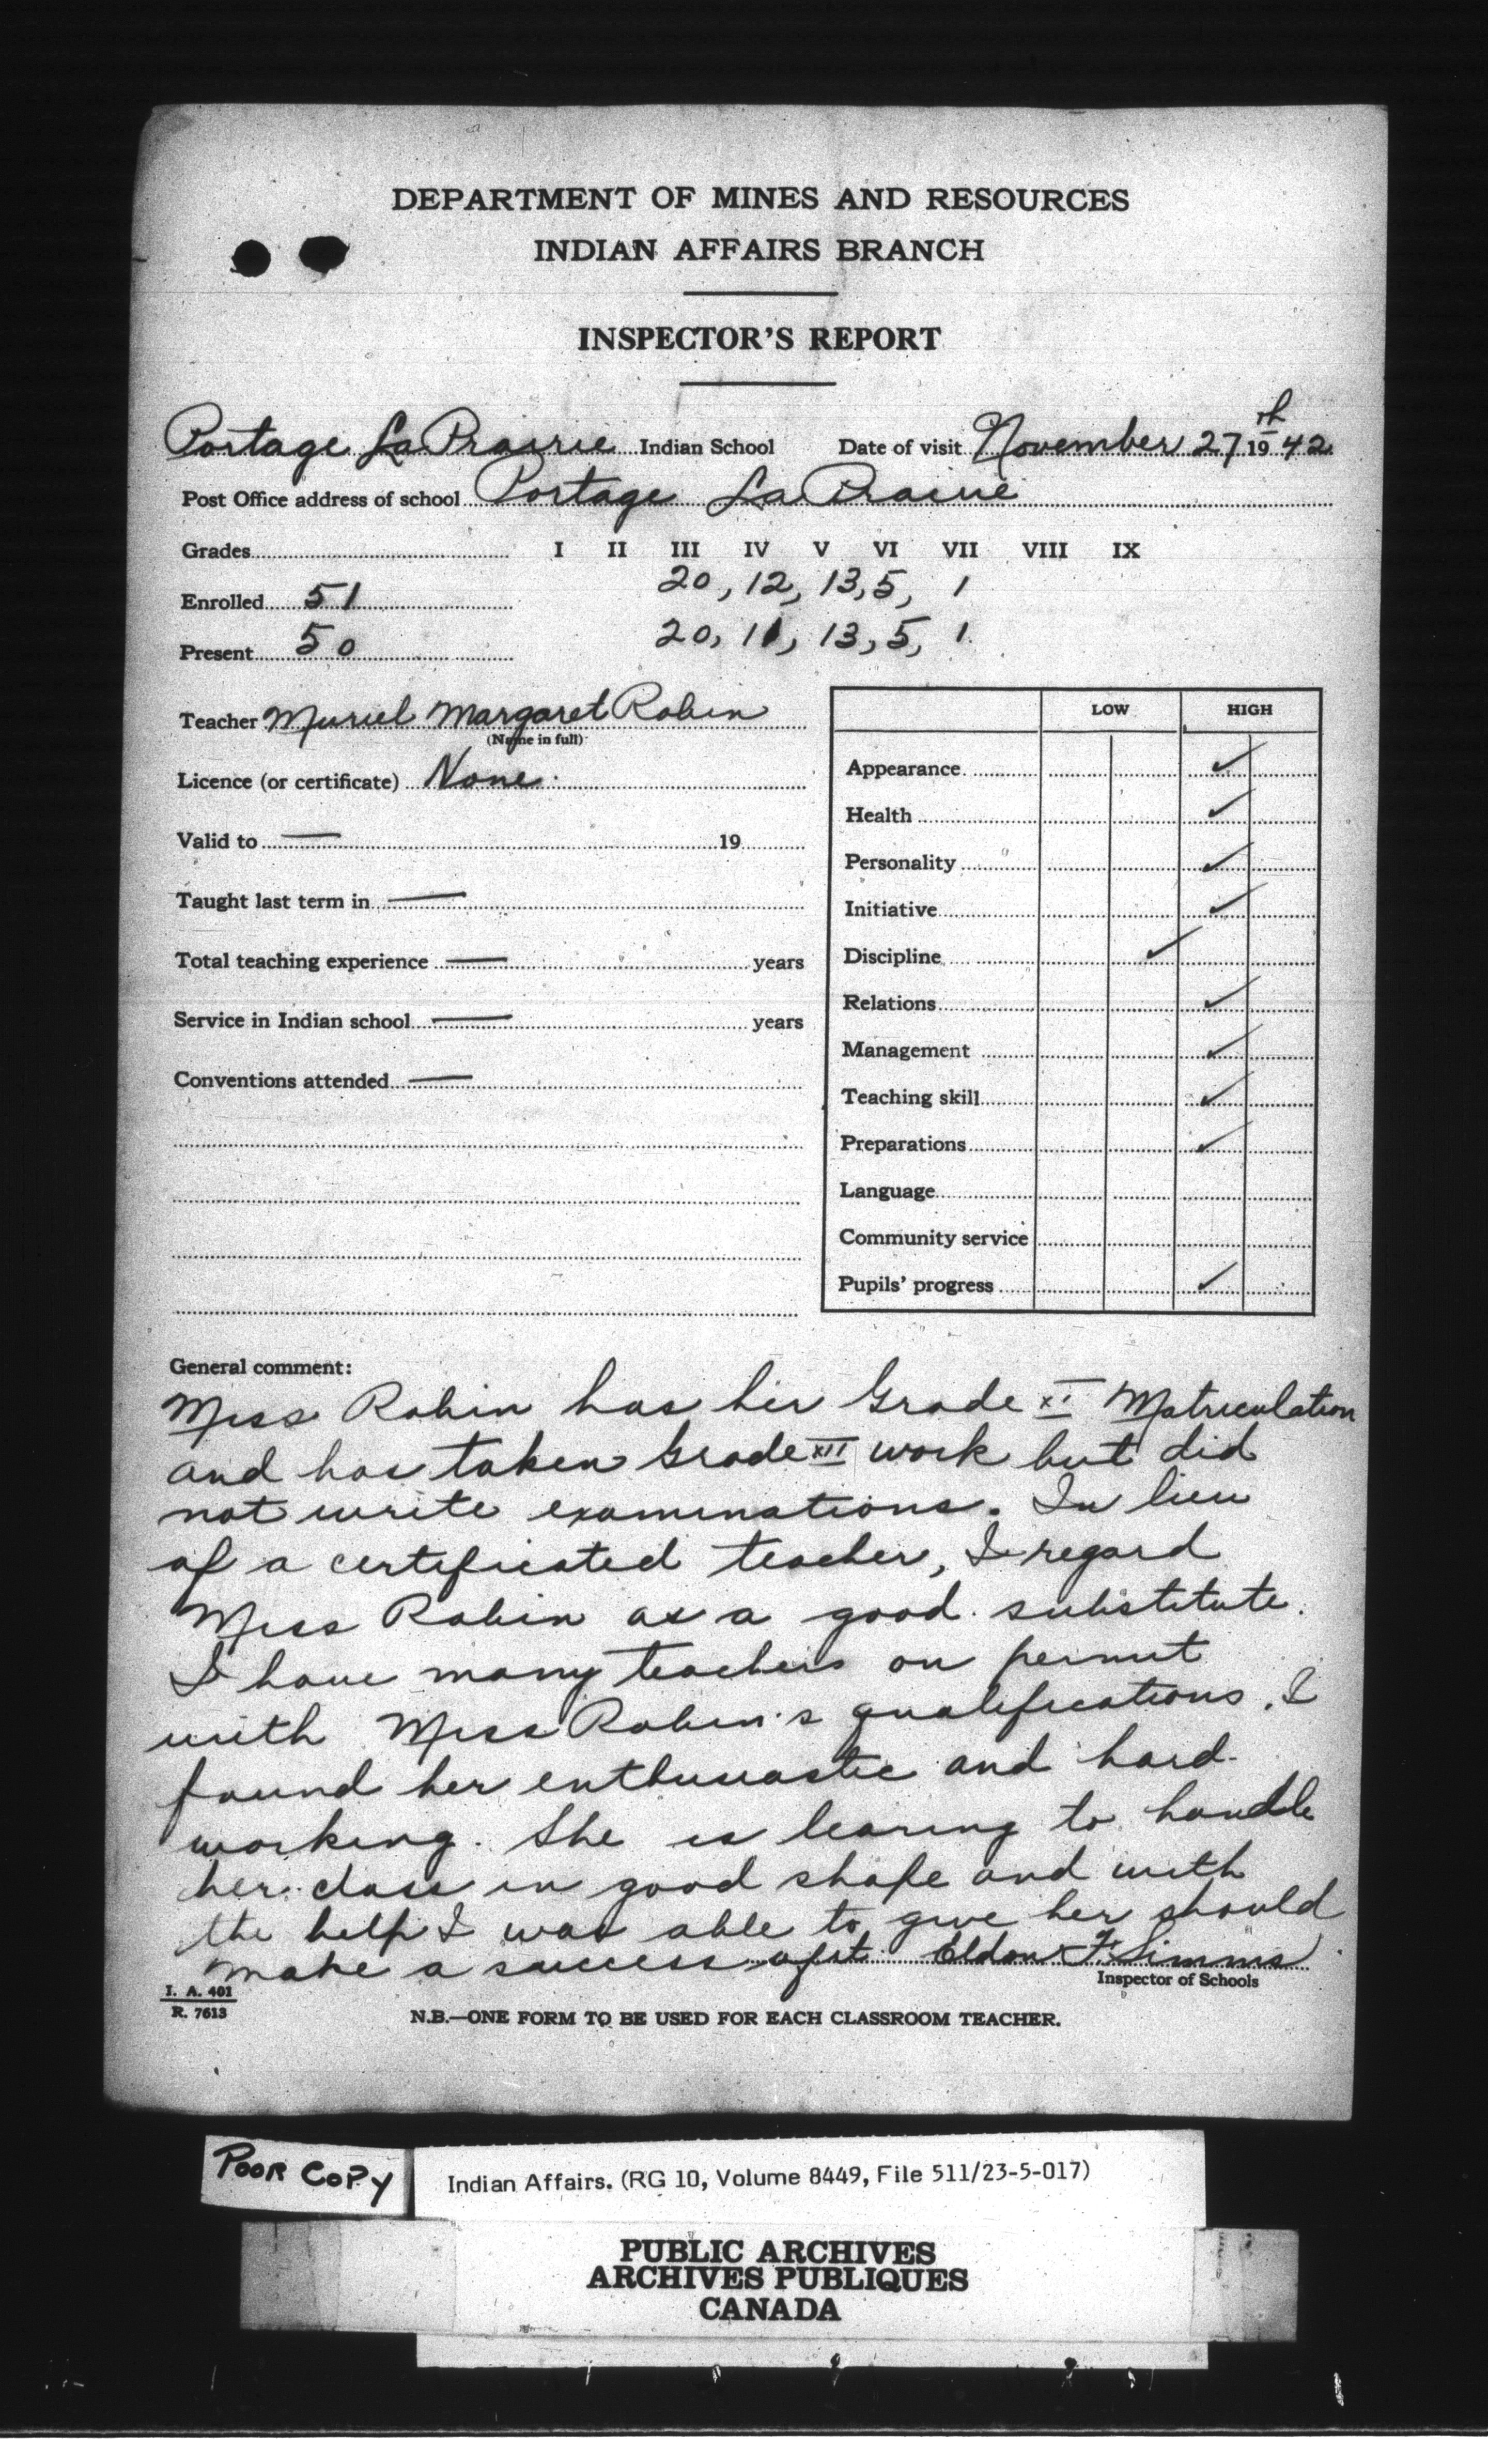 DEPARTMENT OF MINES AND RESOURCES
INDIAN AFFAIRS BRANCH
INSPECTOR'S REPORT
Portage La Prairie Indian School Date of visit November 27th 1942
Post Office address of school Portage La Prairie
Grades I II III IV V VI VII VIII IX
Enrolled 51 20, 12, 13, 5, 1
Present 50 20, 11, 13, 5, 1
Teacher Muriel Margaret Robin
(Name in full)
Licence (or certificate) None.
Valid to — 19
Taught last term in —
Total teaching experience — years
Service in Indian school — years
Conventions attended —
LOW HIGH
Appearance ✓
Health ✓
Personality ✓
Initiative ✓
Discipline ✓
Relations ✓
Management ✓
Teaching skill ✓
Preparations ✓
Language
Community service
Pupils' progress ✓
General comment:
Miss Robin has her Grade XI Matriculation
and has taken Grade XII work but did
not write examinations. In lieu
of a certificated teacher, I regard
Miss Robin as a good substitute.
I have many teachers on permit
with Miss Robin's qualifications. I
found her enthusiastic and hard-
working. She is learing to handle
her class in good shape and with
the help I was able to give her should
make a success of it. Eldon F. Simms
Inspector of Schools
I. A. 401
R. 7613
N.B.—ONE FORM TO BE USED FOR EACH CLASSROOM TEACHER.
POOR COPY
Indian Affairs. (RG 10, Volume 8449, File 511/23-5-017)
PUBLIC ARCHIVES
ARCHIVES PUBLIQUES
CANADA